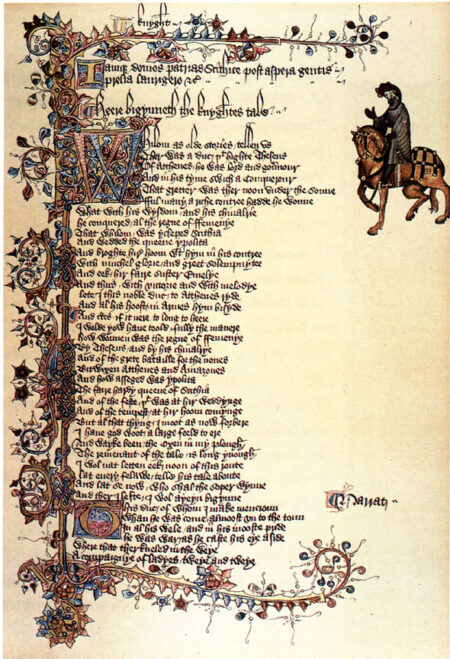 knyght
Iamqz domos patrias Scithice post aspera gentis
prelia laurigero &c
Heere bigynneth the knyghtes tale
Whilom as olde stories tellen us
Ther was a duc þt highte Theseus
Of Atthenes he was lord and gouernour
And in his tyme swich a Conquerour
That gretter was ther noon vnder the sonne
fful many a riche contree hadde he wonne
What with his wysdom and his chiualrie
he conquered al the regne of ffemenye
That whilom was ycleped Scithia
And wedded the queene ypolita
And broghte hir hoom wt hym in his contree
With muchel glorie and greet solempnytee
And eek hir faire suster Emelye
And thus with victorie and with melodye
lete I this noble duc to Atthenes ryde
And al his hoost in Armes hym bisyde
And certes if it nere to long to heere
I wolde yow haue toold fully the manere
how wonnen was the regne of ffemenye
By Theseus and by his chiualrye
And of the grete bataille for the nones
Bitwixen Atthenes and Amazones
And how asseged was ypolita
The faire hardy queene of Scithia
And of the feste þt was at hir weddynge
And of the tempest at hir hoom comynge
But al that thyng I moot as now forbere
I haue god woot a large feeld to ere
And wayke been the Oxen in my plough
The remenant of the tale is long ynough
I wol nat letten eek noon of this route
lat euery felawe telle his tale aboute
And lat se now who shal the soper wynne
And ther I lefte I wol ayeyn bigynne
This duc of whom I make mencioun
Whan he was come almoost vn to the toun
In al his wele and in his mooste pride
he was war as he caste his eye aside
Where that ther kneled in the weye
A compaignye of ladyes tweye and tweye
Narrat